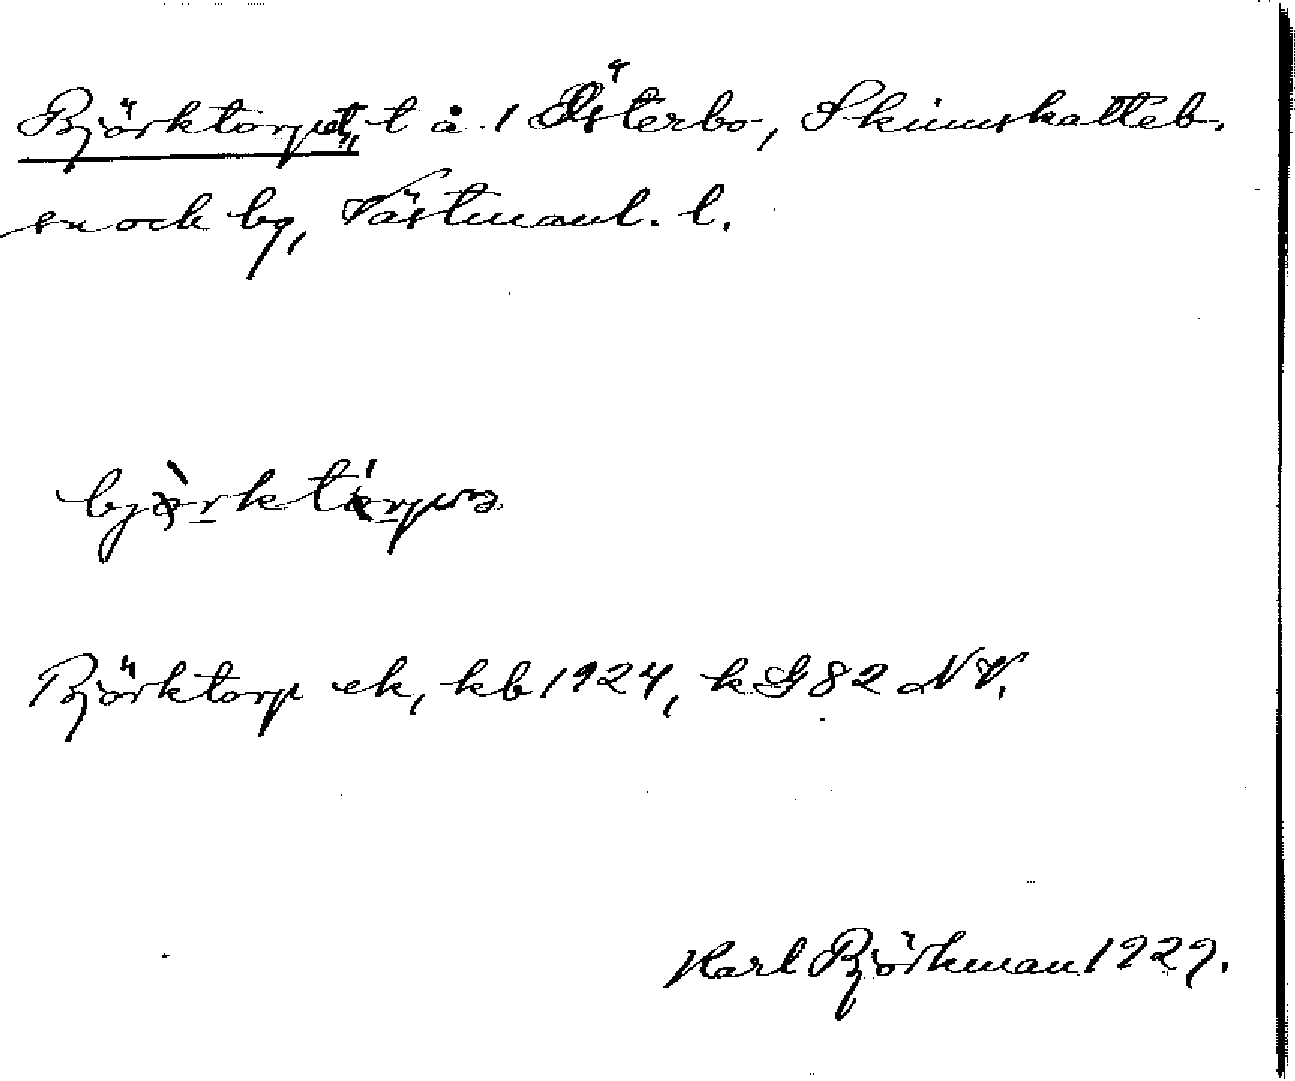 Björktorpet, t å 1 Österbo, Skinnskatteb.
sn och bg, Västmanl. l.
Björktorp ek, kb 1924, k G 82 NV.
Karl Björkman 1929.